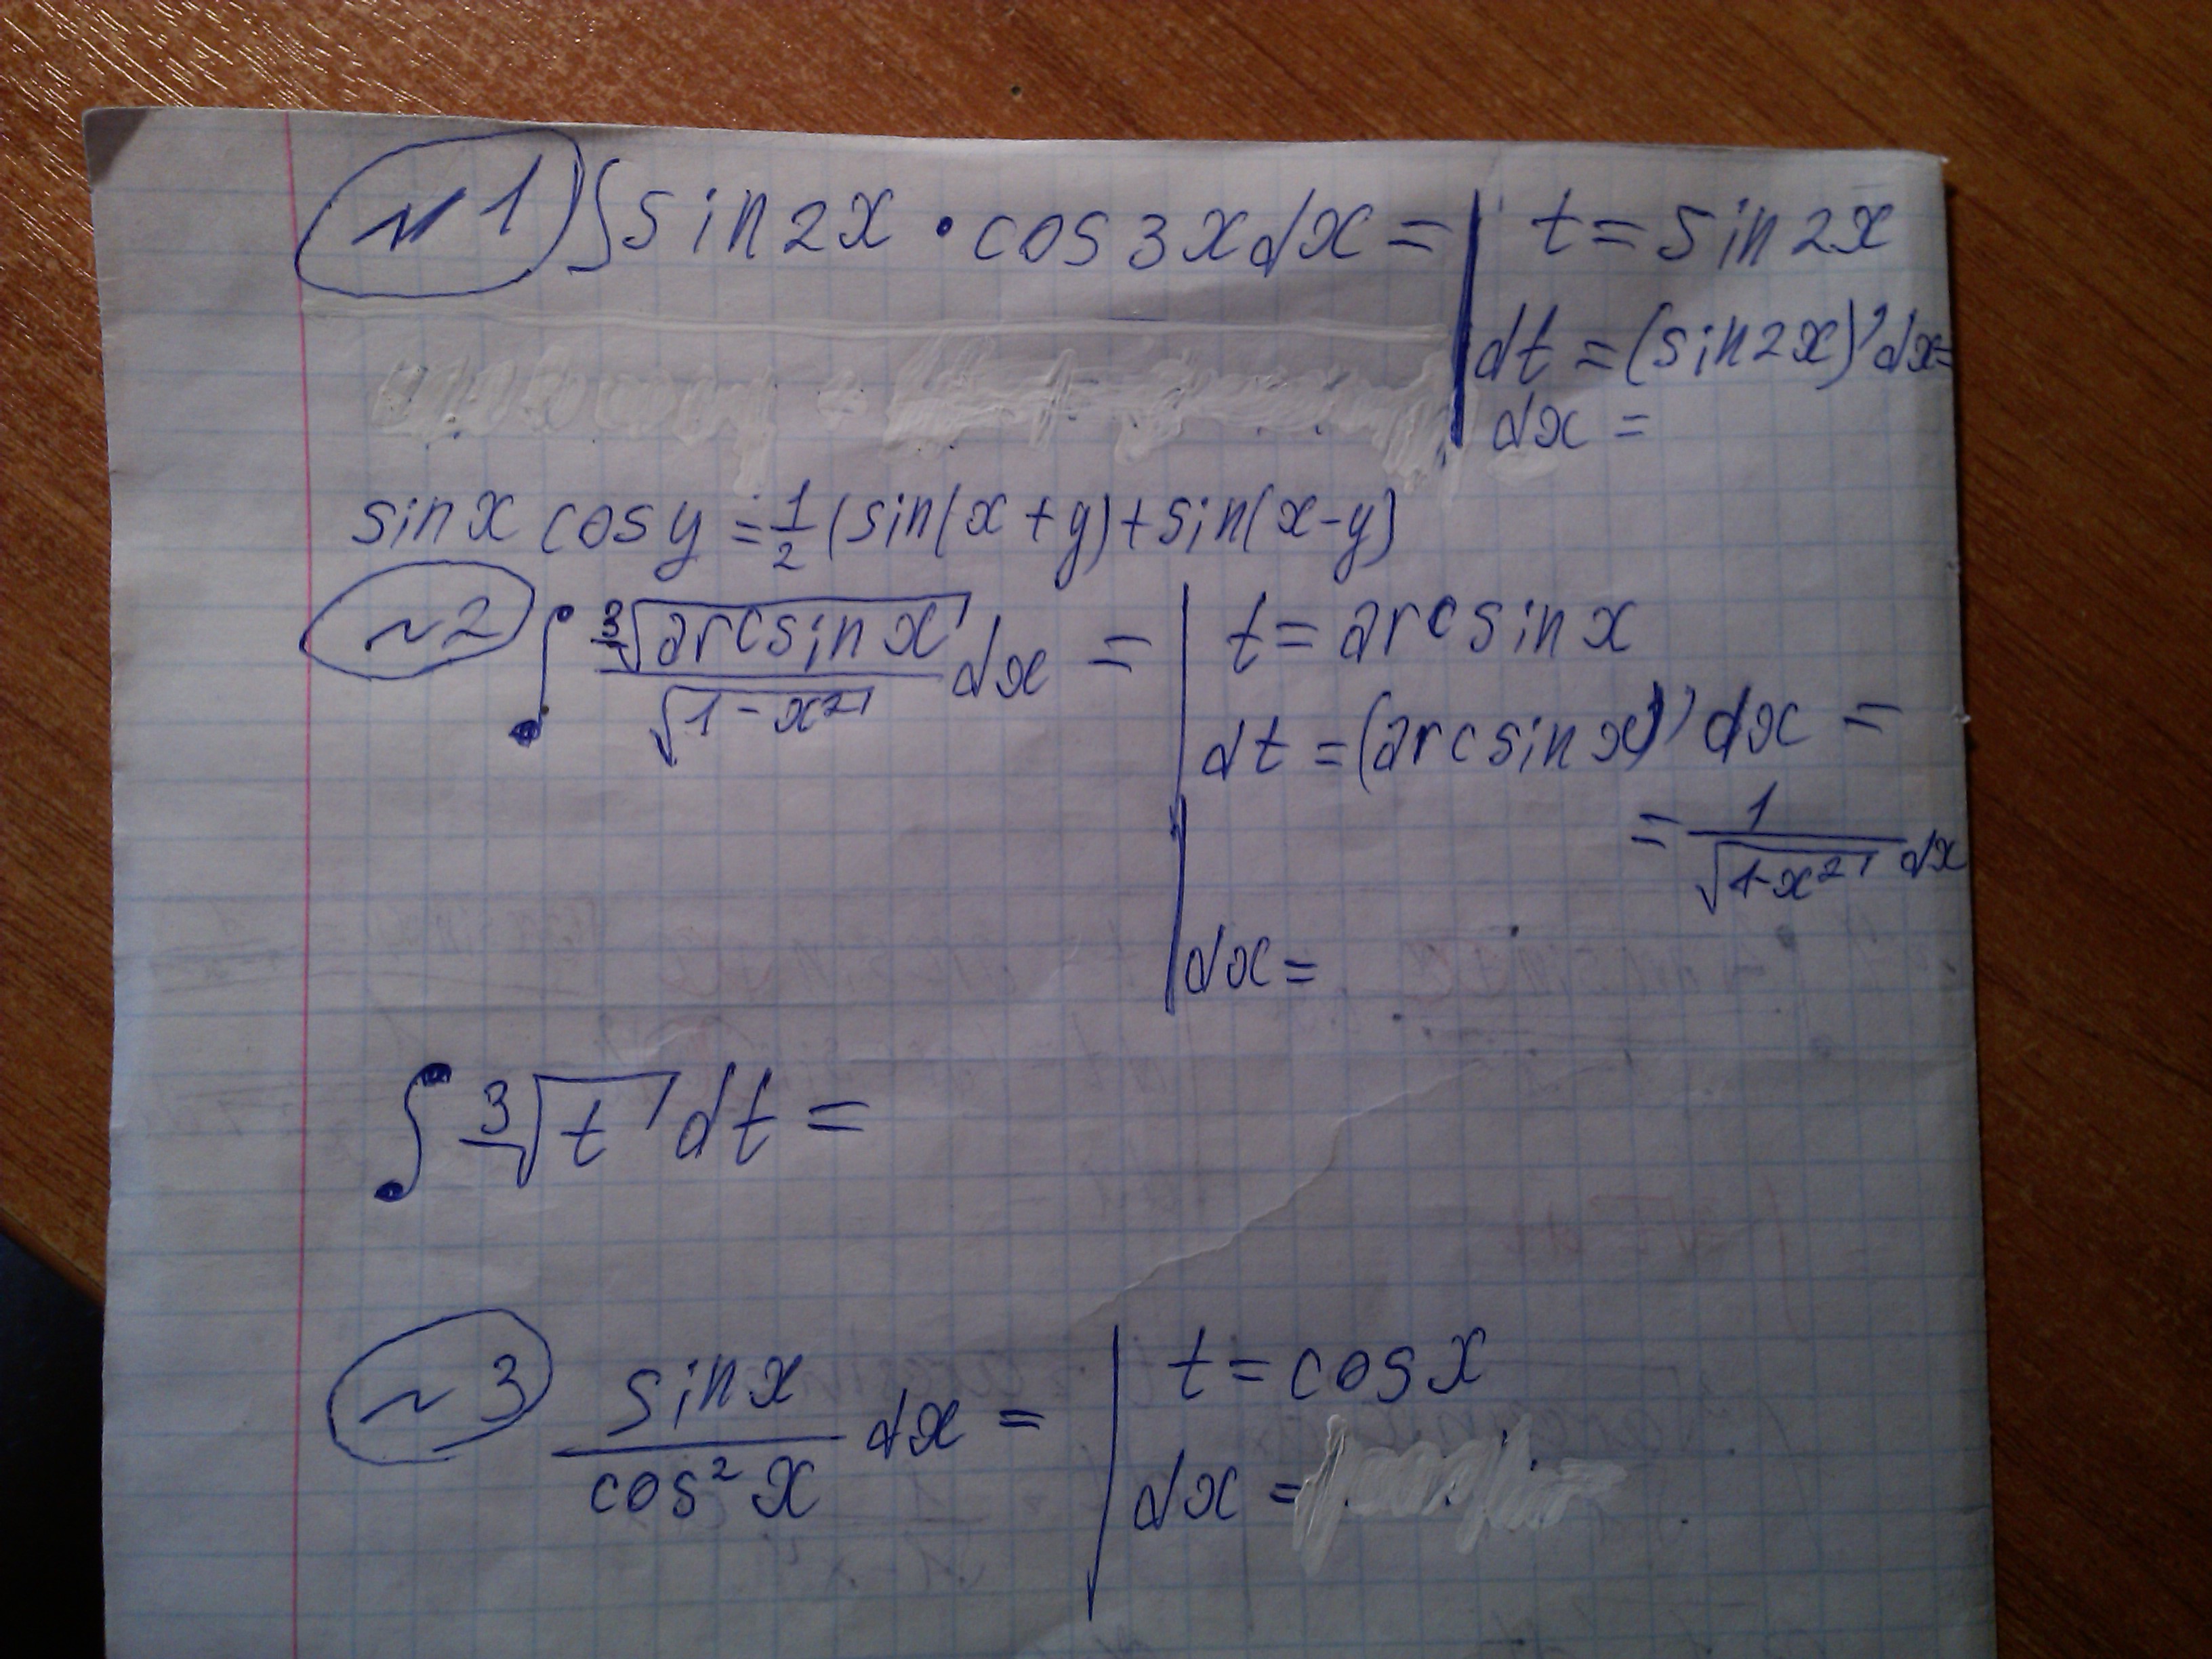 №1 ∫sin2x · cos3xdx = | t = sin2x
dt = (sin2x)'dx=
dx =
sinx cosy = 1/2 (sin(x+y)+sin(x-y)
~2 ∫ ∛(arcsinx) / √(1-x²) dx = | t = arcsinx
dt = (arcsinx)' dx =
= 1/√(1-x²) dx
dx =
∫ ∛t dt =
~3 sinx / cos²x dx = | t = cosx
dx =